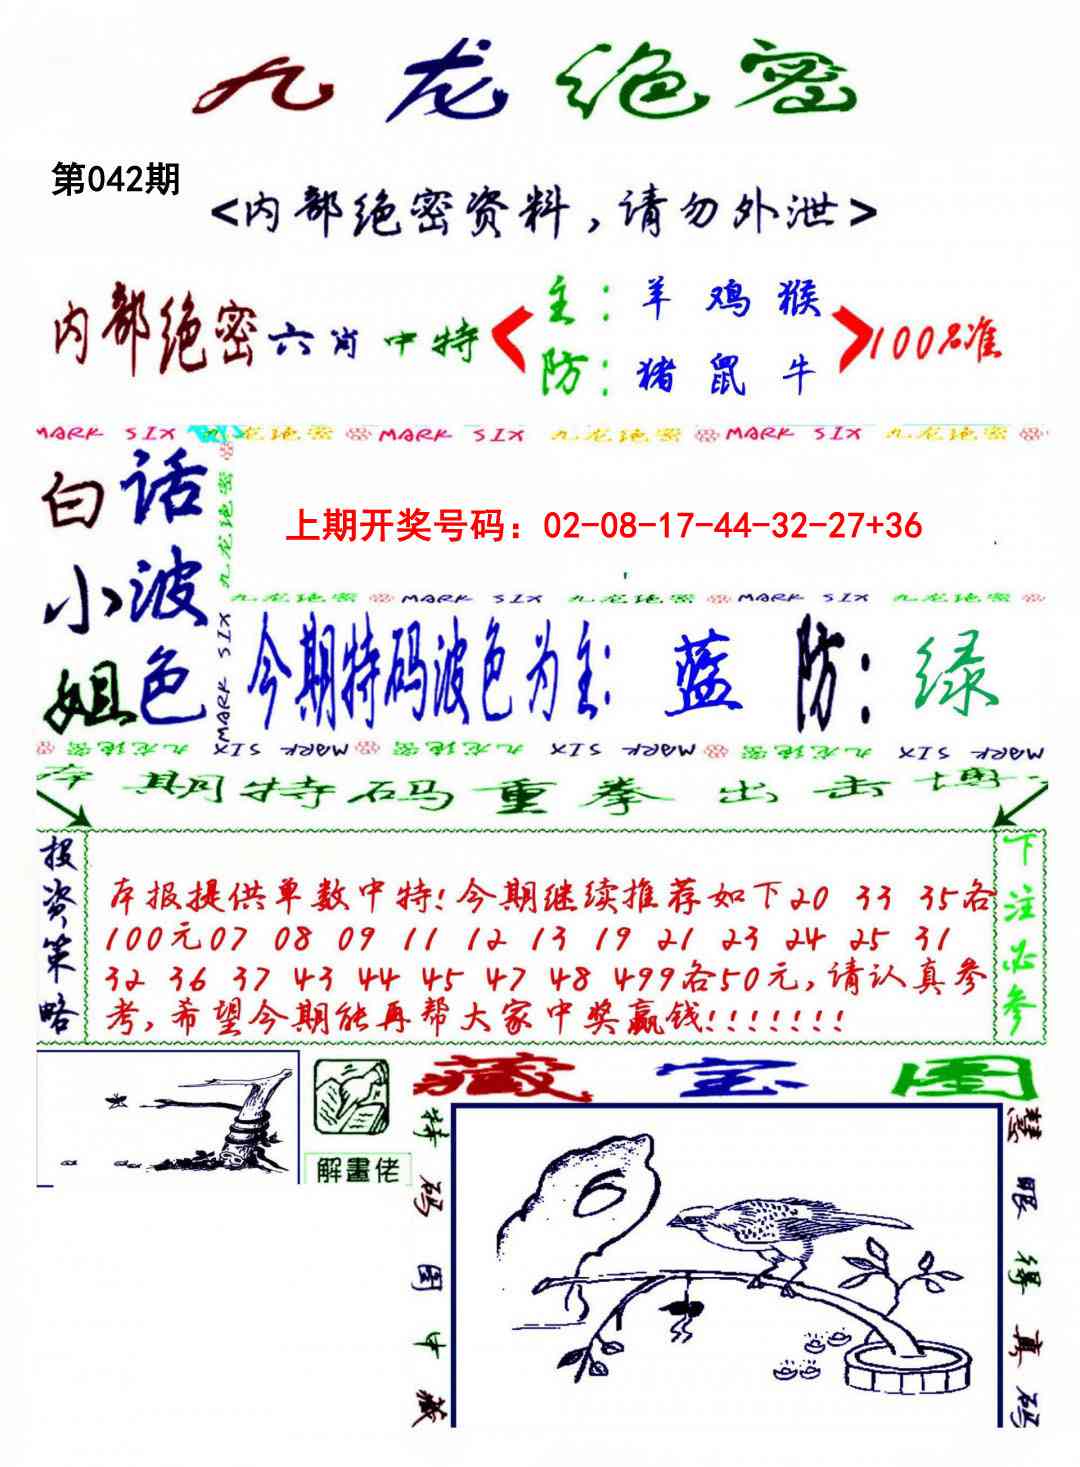 九龙绝密
第042期
<内部绝密资料,请勿外泄>
内部绝密六肖中特
主:羊 鸡 猴
防:猪 鼠 牛
100%准
MARK SIX 九龙绝密 MARK SIX 九龙绝密 MARK SIX 九龙绝密
九龙绝密
MARK SIX
白小姐
话波色
上期开奖号码:02-08-17-44-32-27+36
九龙绝密 MARK SIX 九龙绝密 MARK SIX 九龙绝密
今期特码波色为主:蓝 防:绿
九龙绝密 MARK SIX 九龙绝密 MARK SIX 九龙绝密 MARK SIX
本期特码重拳出击博
投资策略
本报提供单数中特!今期继续推荐如下20 33 35各
100元07 08 09 11 12 13 19 21 23 24 25 31
32 36 37 43 44 45 47 48 499各50元,请认真参
考,希望今期能再帮大家中奖赢钱!!!!!!!
下注必参
解畫佬
藏宝图
特码图中藏
慧眼得真码